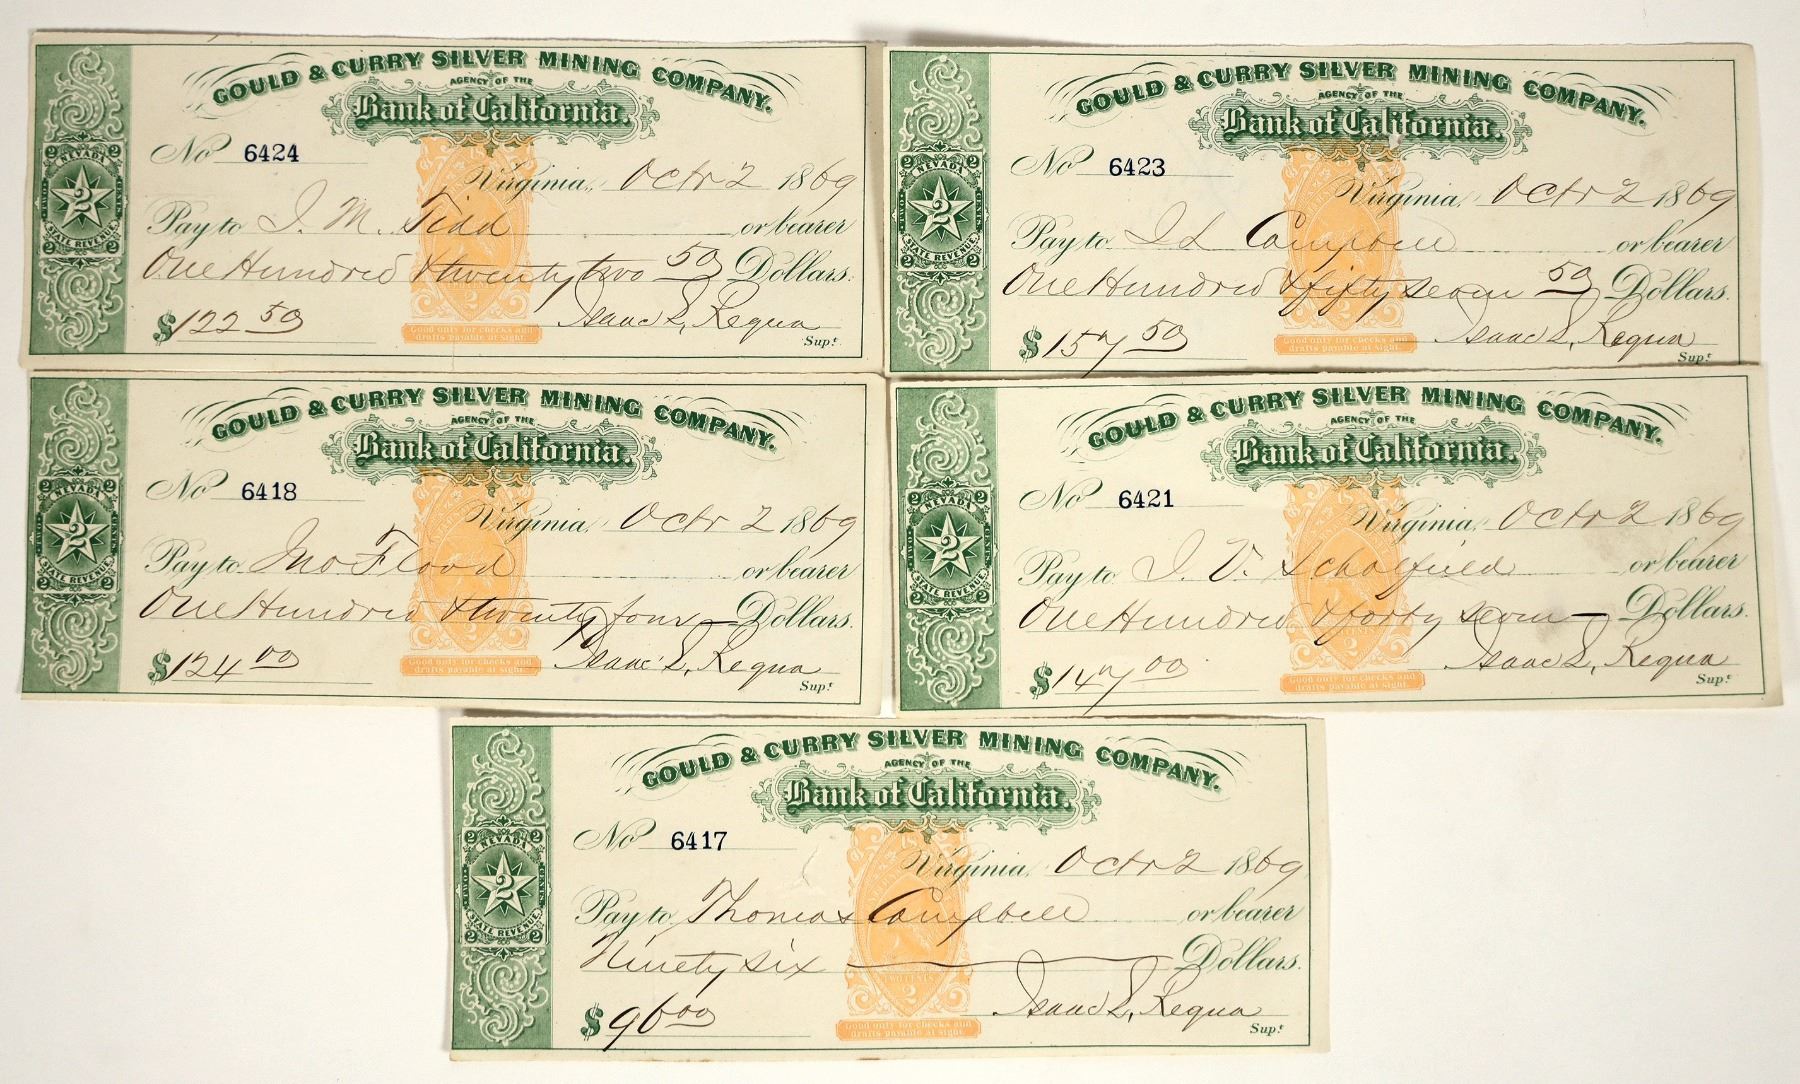 GOULD & CURRY SILVER MINING COMPANY.
AGENCY OF THE
Bank of California.
No 6424
Virginia, Octr 2 1869
Pay to J. M. Tidd or bearer
One Hundred & twenty two 50 Dollars.
$122 50 Isaac L. Requa
Supt
2 NEVADA 2
TWO 2 CENTS
2 STATE REVENUE 2
Good only for checks and
drafts payable at sight.
GOULD & CURRY SILVER MINING COMPANY.
AGENCY OF THE
Bank of California.
No 6423
Virginia, Octr 2 1869
Pay to I L Campbell or bearer
One Hundred & fifty seven 50 Dollars.
$157 50 Isaac L. Requa
Supt
2 NEVADA 2
TWO 2 CENTS
2 STATE REVENUE 2
Good only for checks and
drafts payable at sight.
GOULD & CURRY SILVER MINING COMPANY.
AGENCY OF THE
Bank of California.
No 6418
Virginia, Octr 2 1869
Pay to Jno. Flood or bearer
One Hundred & twenty four Dollars.
$124 00 Isaac L. Requa
Supt
2 NEVADA 2
TWO 2 CENTS
2 STATE REVENUE 2
Good only for checks and
drafts payable at sight.
GOULD & CURRY SILVER MINING COMPANY.
AGENCY OF THE
Bank of California.
No 6421
Virginia, Octr 2 1869
Pay to J. V. Scholfield or bearer
One Hundred & forty seven Dollars.
$147 00 Isaac L. Requa
Supt
2 NEVADA 2
TWO 2 CENTS
2 STATE REVENUE 2
Good only for checks and
drafts payable at sight.
GOULD & CURRY SILVER MINING COMPANY.
AGENCY OF THE
Bank of California.
No 6417
Virginia, Octr 2 1869
Pay to Thomas Campbell or bearer
Ninety six Dollars.
$96 00 Isaac L. Requa
Supt
2 NEVADA 2
TWO 2 CENTS
2 STATE REVENUE 2
Good only for checks and
drafts payable at sight.